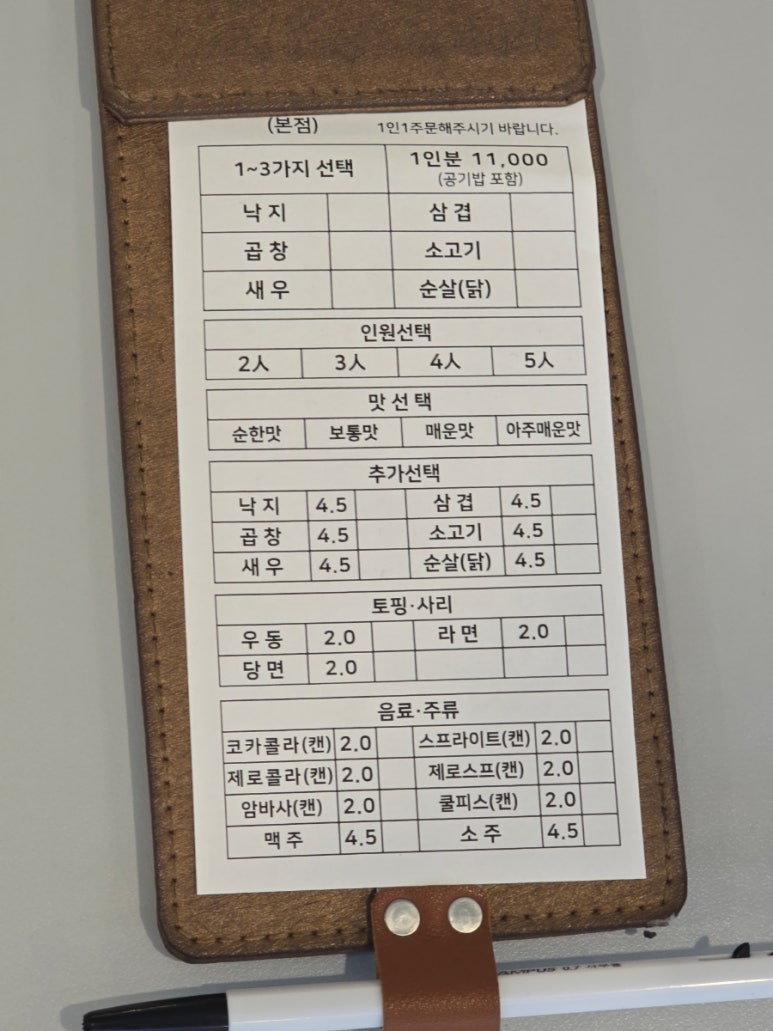 (본점) 1인1주문해주시기 바랍니다.
1~3가지 선택 1인분 11,000
(공기밥 포함)
낙 지 삼 겹
곱 창 소고기
새 우 순살(닭)
인원선택
2人 3人 4人 5人
맛 선 택
순한맛 보통맛 매운맛 아주매운맛
추가선택
낙 지 4.5 삼 겹 4.5
곱 창 4.5 소고기 4.5
새 우 4.5 순살(닭) 4.5
토핑·사리
우 동 2.0 라 면 2.0
당 면 2.0
음료·주류
코카콜라(캔) 2.0 스프라이트(캔) 2.0
제로콜라(캔) 2.0 제로스프(캔) 2.0
암바사(캔) 2.0 쿨피스(캔) 2.0
맥 주 4.5 소 주 4.5